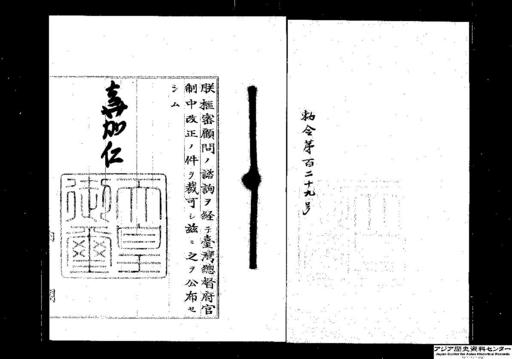 勅令第百二十九号
朕樞密顧問ノ諮詢ヲ経テ臺湾總督府官
制中改正ノ件ヲ裁可シ茲ニ之ヲ公布セ
シム
嘉仁
天皇
御璽
内閣
アジア歴史資料センター
Japan Center for Asian Historical Records